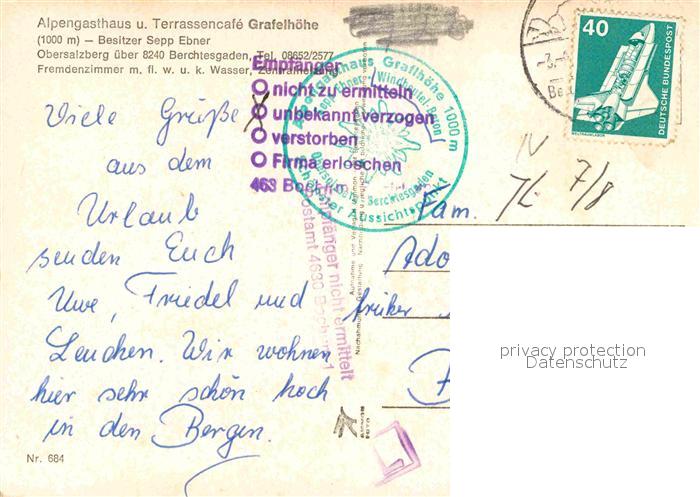 Alpengasthaus u. Terrassencafé Grafelhöhe
(1000 m) – Besitzer Sepp Ebner
Obersalzberg über 8240 Berchtesgaden, Tel. 08652/2577
Fremdenzimmer m. fl. w. u. k. Wasser, Zentralheizung
Viele Grüße
aus dem
Urlaub
senden Euch
Uwe, Friedel und
Lenchen. Wir wohnen
hier sehr schön hoch
in den Bergen.
Nr. 684
Empfänger
nicht zu ermitteln
unbekannt verzogen
verstorben
Firma erloschen
463 Bochum
Empfänger nicht ermittelt
Postamt 4630 Bochum 1
Alpengasthaus Graflhöhe 1000 m
Windbeutel-Baron
Berchtesgaden
schönster Aussichtspunkt
40
DEUTSCHE BUNDESPOST
WELTRAUMLABOR
IV
7/8
Fam.
Ado
früher
privacy protection
Datenschutz